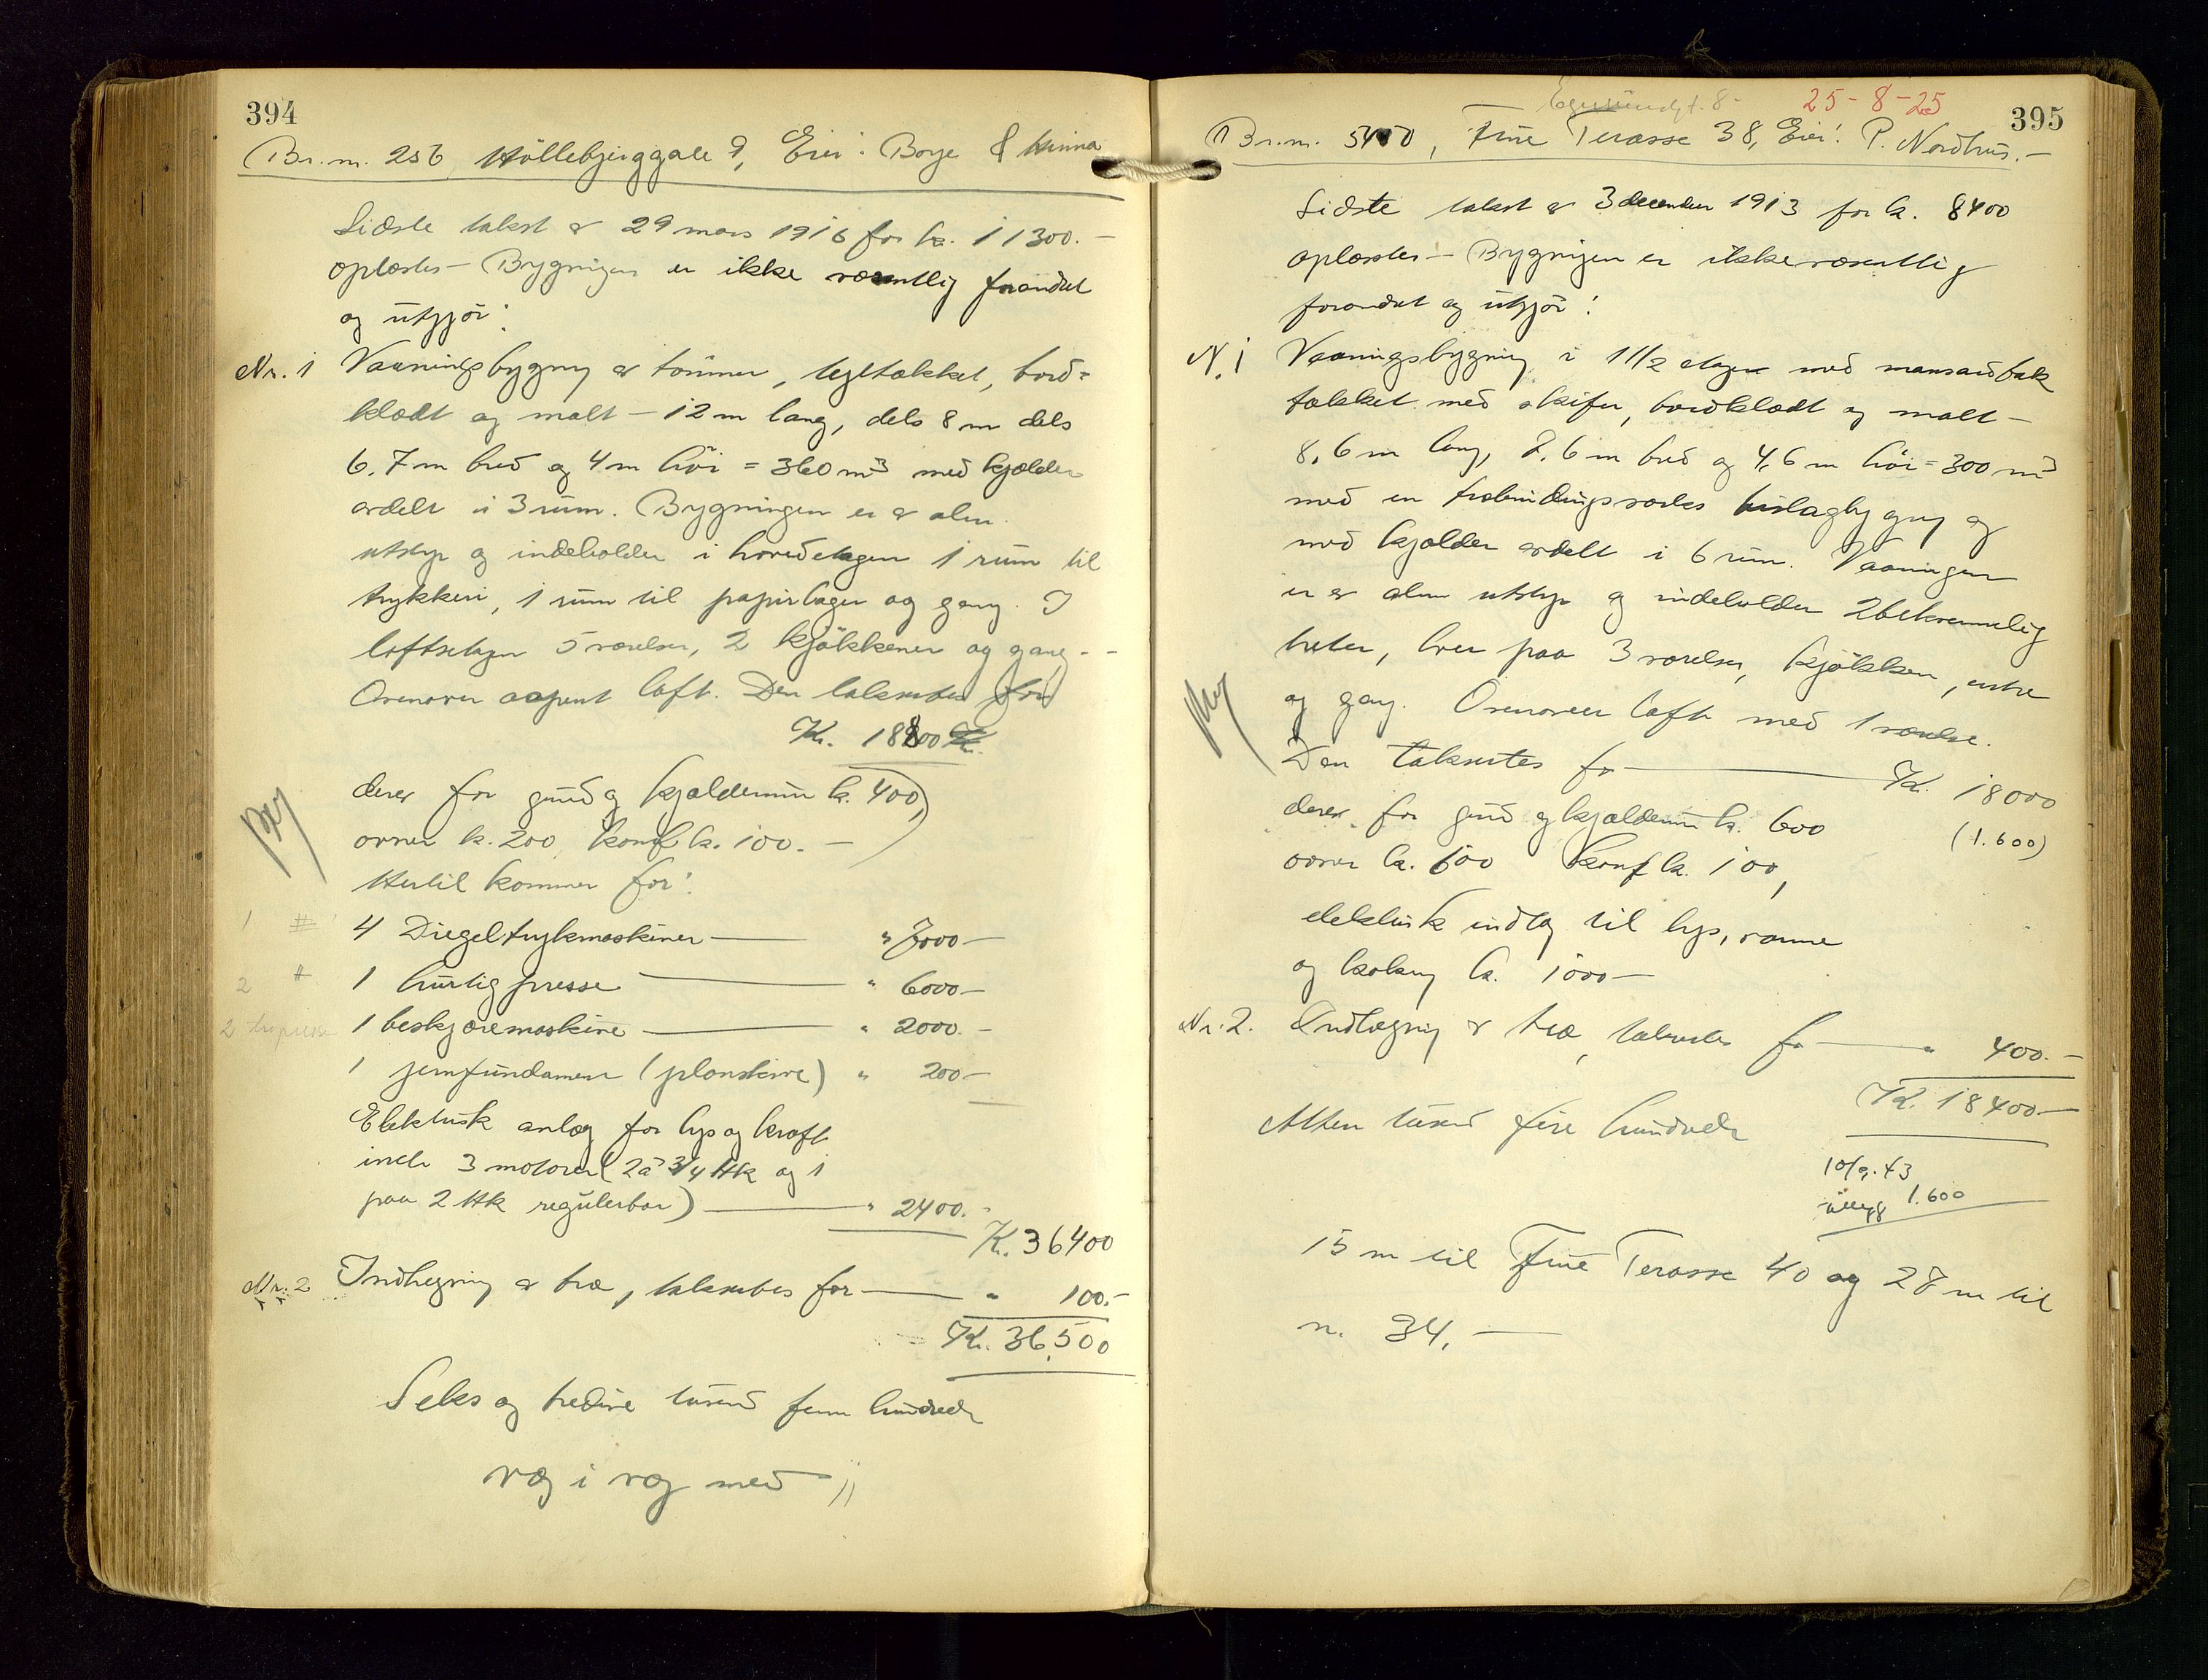 394
Br.m. 256, Höllebjerggate 9, Eier: Boye & Hinna
Sidste takst av 29 mars 1916 for kr. 11300.-
oplæstes - Bygningen er ikke væsentlig forandret
og utgjör:
Nr. 1 Vaaningsbygning av tömmer, tegltækket, bord-
klædt og malt - 12 m lang, dels 8 m dels
6,7 m bred og 4 m höi = 360 m3 med kjælder
avdelt i 3 rum. Bygningen er av alm.
utstyr og indeholder i hovedetagen 1 rum til
trykkeri, 1 rum til papirlager og gang. I
loftsetagen 5 værelser, 2 kjökkener og gang. -
Ovenover aapent loft. Den taksertes for
Kr. 18800
derav for grund og kjælderrum kr. 400,
ovner kr. 200, komf kr. 100. -
Hertil kommer for:
1 # 4 Diegeltrykmaskiner — " 7000 -
2 # 1 hurtigpresse — " 6000 -
2 1 beskjæremaskine — " 2000. -
1 jernfundament (planskive) " 200 -
Elektrisk anlæg for lys og kraft
incl. 3 motorer (2 à 3/4 Hk og 1
paa 2 Hk regulerbar) — " 2400. -
Kr. 36400
Nr. 2 Indhegning av træ, taksertes for — " 100.-
Kr. 36,500
Seks og tredive tusend fem hundrede
væg i væg med 11
Egersundgt. 8 - 25-8-25
395
Br.m. 5410, Fine Terasse 38, Eier: P. Nordhus. -
Sidste takst av 3 december 1913 for kr. 8400
oplæstes - Bygningen er ikke væsentlig
forandret og utgjör:
N. 1 Vaaningsbygning i 1 1/2 etager med mansardtak
tækket med skifer, bordklædt og malt -
8,6 m lang, 7,6 m bred og 4,6 m höi = 300 m3
med en trebindingsverks bislagbygning og
med kjælder avdelt i 6 rum. Vaaningen
er av alm utstyr og indeholder 2 bekvemmelig
heter, hver paa 3 værelser, kjökken, entre
og gang. Ovenover loft med 1 værelse.
Den taksertes for — Kr. 18000
derav for grund og kjælderrum kr. 600 (1.600)
ovner kr. 600 komf kr. 100,
elektrisk indlæg til lys, varme
og kokning kr. 1000 -
Nr. 2. Indhegning av træ, taksertes for — " 400. -
Kr. 18400 -
Atten tusend fire hundrede
10/9. 43
1.600
15 m til Fine Terasse 40 og 27 m til
n. 34. —